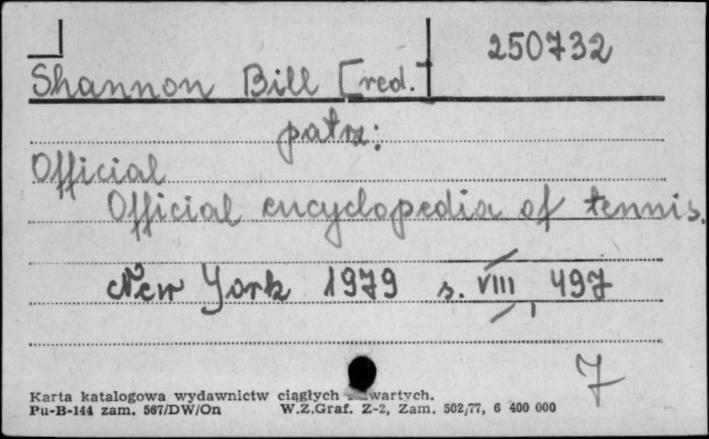 250732
Shannon Bill [red.]
patrz:
Official
Official encyclopedia of tennis.
New York 1979 s. VIII, 497
7
Karta katalogowa wydawnictw ciągłych wartych.
Pu-B-144 zam. 567/DW/On W.Z.Graf. Z-2, Zam. 502/77, 6 400 000